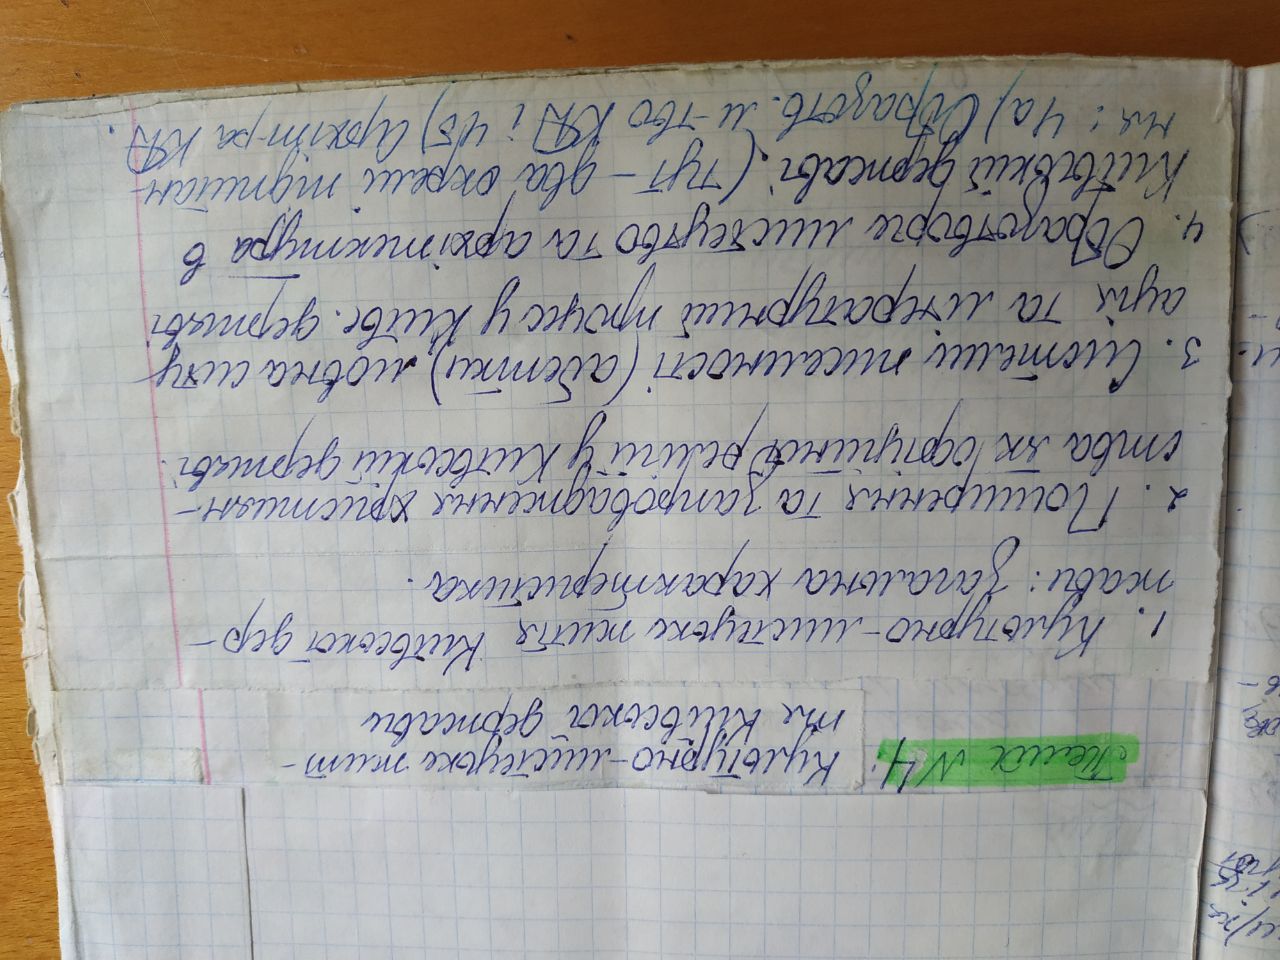 Тема №4. Культурно-мистецьке жит-
тя Київської держави
1. Культурно-мистецьке життя Київської дер-
жави: загальна характеристика.
2. Поширення та запровадження християн-
ства як офіційної релігії у Київській державі.
3. Системи писемності (абетки), мовна ситу-
ація та літературний процес у Київс. державі
4. Образотворче мистецтво та архітектура в
Київській державі. (тут – два окремі титан
ня: 4а) Образотв. м-тво КД і 4б) Архіт-ра КД.